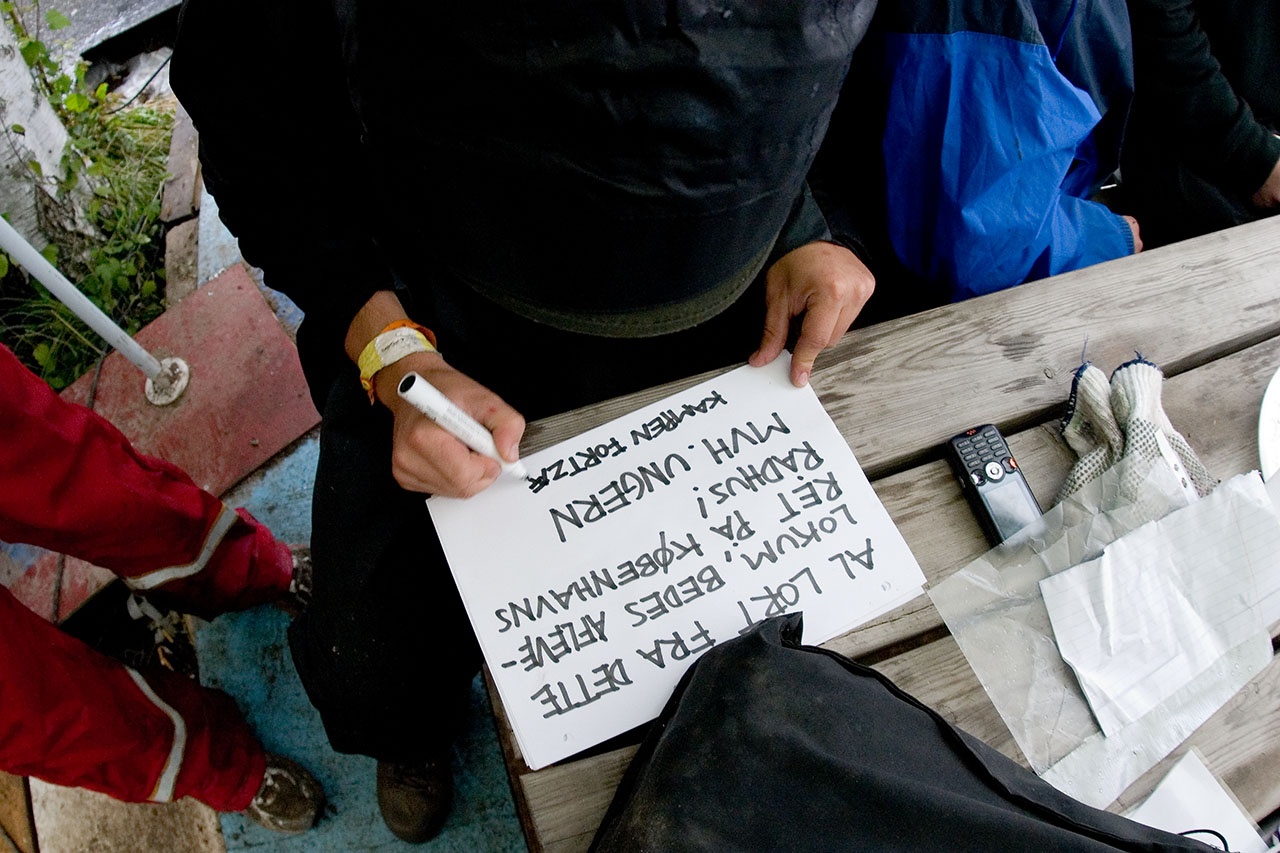 AL LORT FRA DETTE
LOKUM, BEDES AFLEVE-
RET PÅ KØBENHAVNS
RÅDHUS!
MVH. UNGERN
KAMPEN FORTZÆ